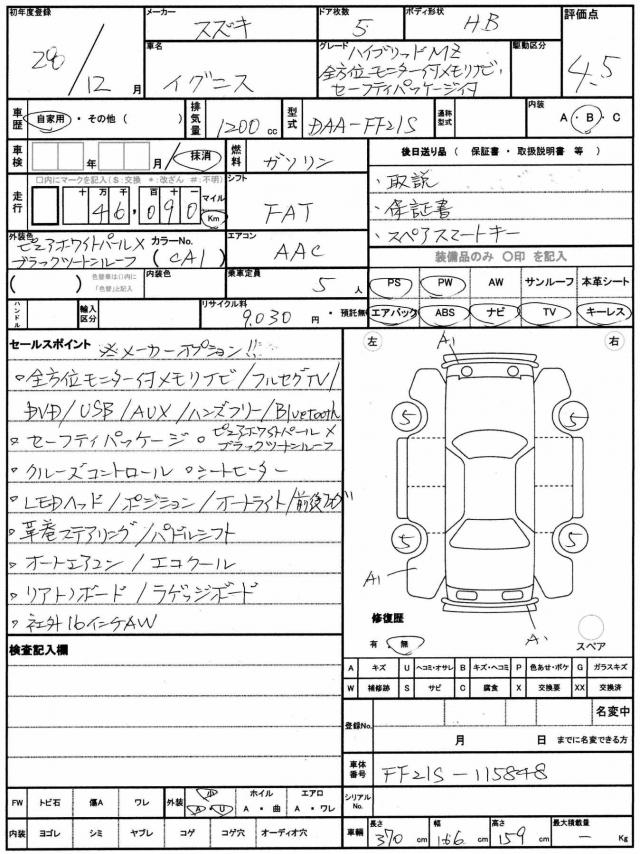 初年度登録 メーカー ドア枚数 ボディ形状 評価点
28 / 12 月 スズキ 5 HB 4.5
車名 グレード 駆動区分
イグニス ハイブリッドMZ
全方位モニター付メモリナビ・
セーフティパッケージ付
車歴 自家用 ・ その他 ( ) 排気量 1200 cc 型式 DAA-FF21S 通称型式 内装 A ・ B ・ C
車検 年 月 / 抹消 燃料 ガソリン 後日送り品 ( 保証書 ・ 取扱説明書 等 )
走行 □内にマークを記入 (S:交換 *:改ざん #:不明) シフト ・取説
十 万 千 百 十 一 マイル
46,090 Km FAT ・保証書
外装色 カラーNo. エアコン ・スペアスマートキー
ピュアホワイトパールX
ブラックツートンルーフ (CA1) AAC 装備品のみ ○印 を記入
( ) 色替車は□内に「色替」と記入 内装色 乗車定員 5 人 PS PW AW サンルーフ 本革シート
ハンドル 輸入区分 リサイクル料 9,030 円 ・ 預託無 エアバック ABS ナビ TV キーレス
セールスポイント ※メーカーオプション!!
○全方位モニター付メモリナビ/フルセグTV/
DVD/USB/AUX/ハンズフリー/Bluetooth
○セーフティパッケージ ○ピュアホワイトパールX
ブラックツートンルーフ
○クルーズコントロール ○シートヒーター
○LEDヘッド/ポジション/オートライト/前後フォグ
○革巻ステアリング/パドルシフト
○オートエアコン/エコクール
○リアトノボード/ラゲッジボード
○社外16インチAW
検査記入欄
左 右
A1
5 5
5 5
A1
A1
修復歴
有 ・ 無
スペア
A キズ U ヘコミ・オサレ B キズ・ヘコミ P 色あせ・ボケ G ガラスキズ
W 補修跡 S サビ C 腐食 X 交換要 XX 交換済
登録No. 名変中
月 日 までに名変できる方
車体番号 FF21S-115848
FW トビ石 傷A ワレ 外装 小 A ・ U ホイル A ・ 曲 エアロ A ・ ワレ シリアルNo.
内装 ヨゴレ シミ ヤブレ コゲ コゲ穴 オーディオ穴 車輌 長さ 370 cm 幅 166 cm 高さ 159 cm 最大積載量 - Kg